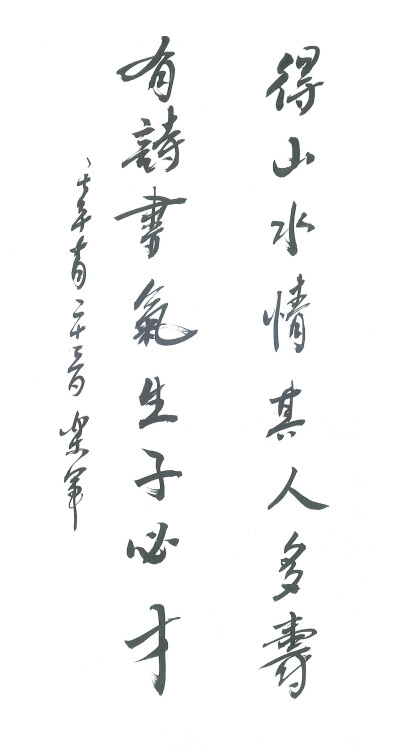 得山水情其人多壽
有詩書氣生子必才